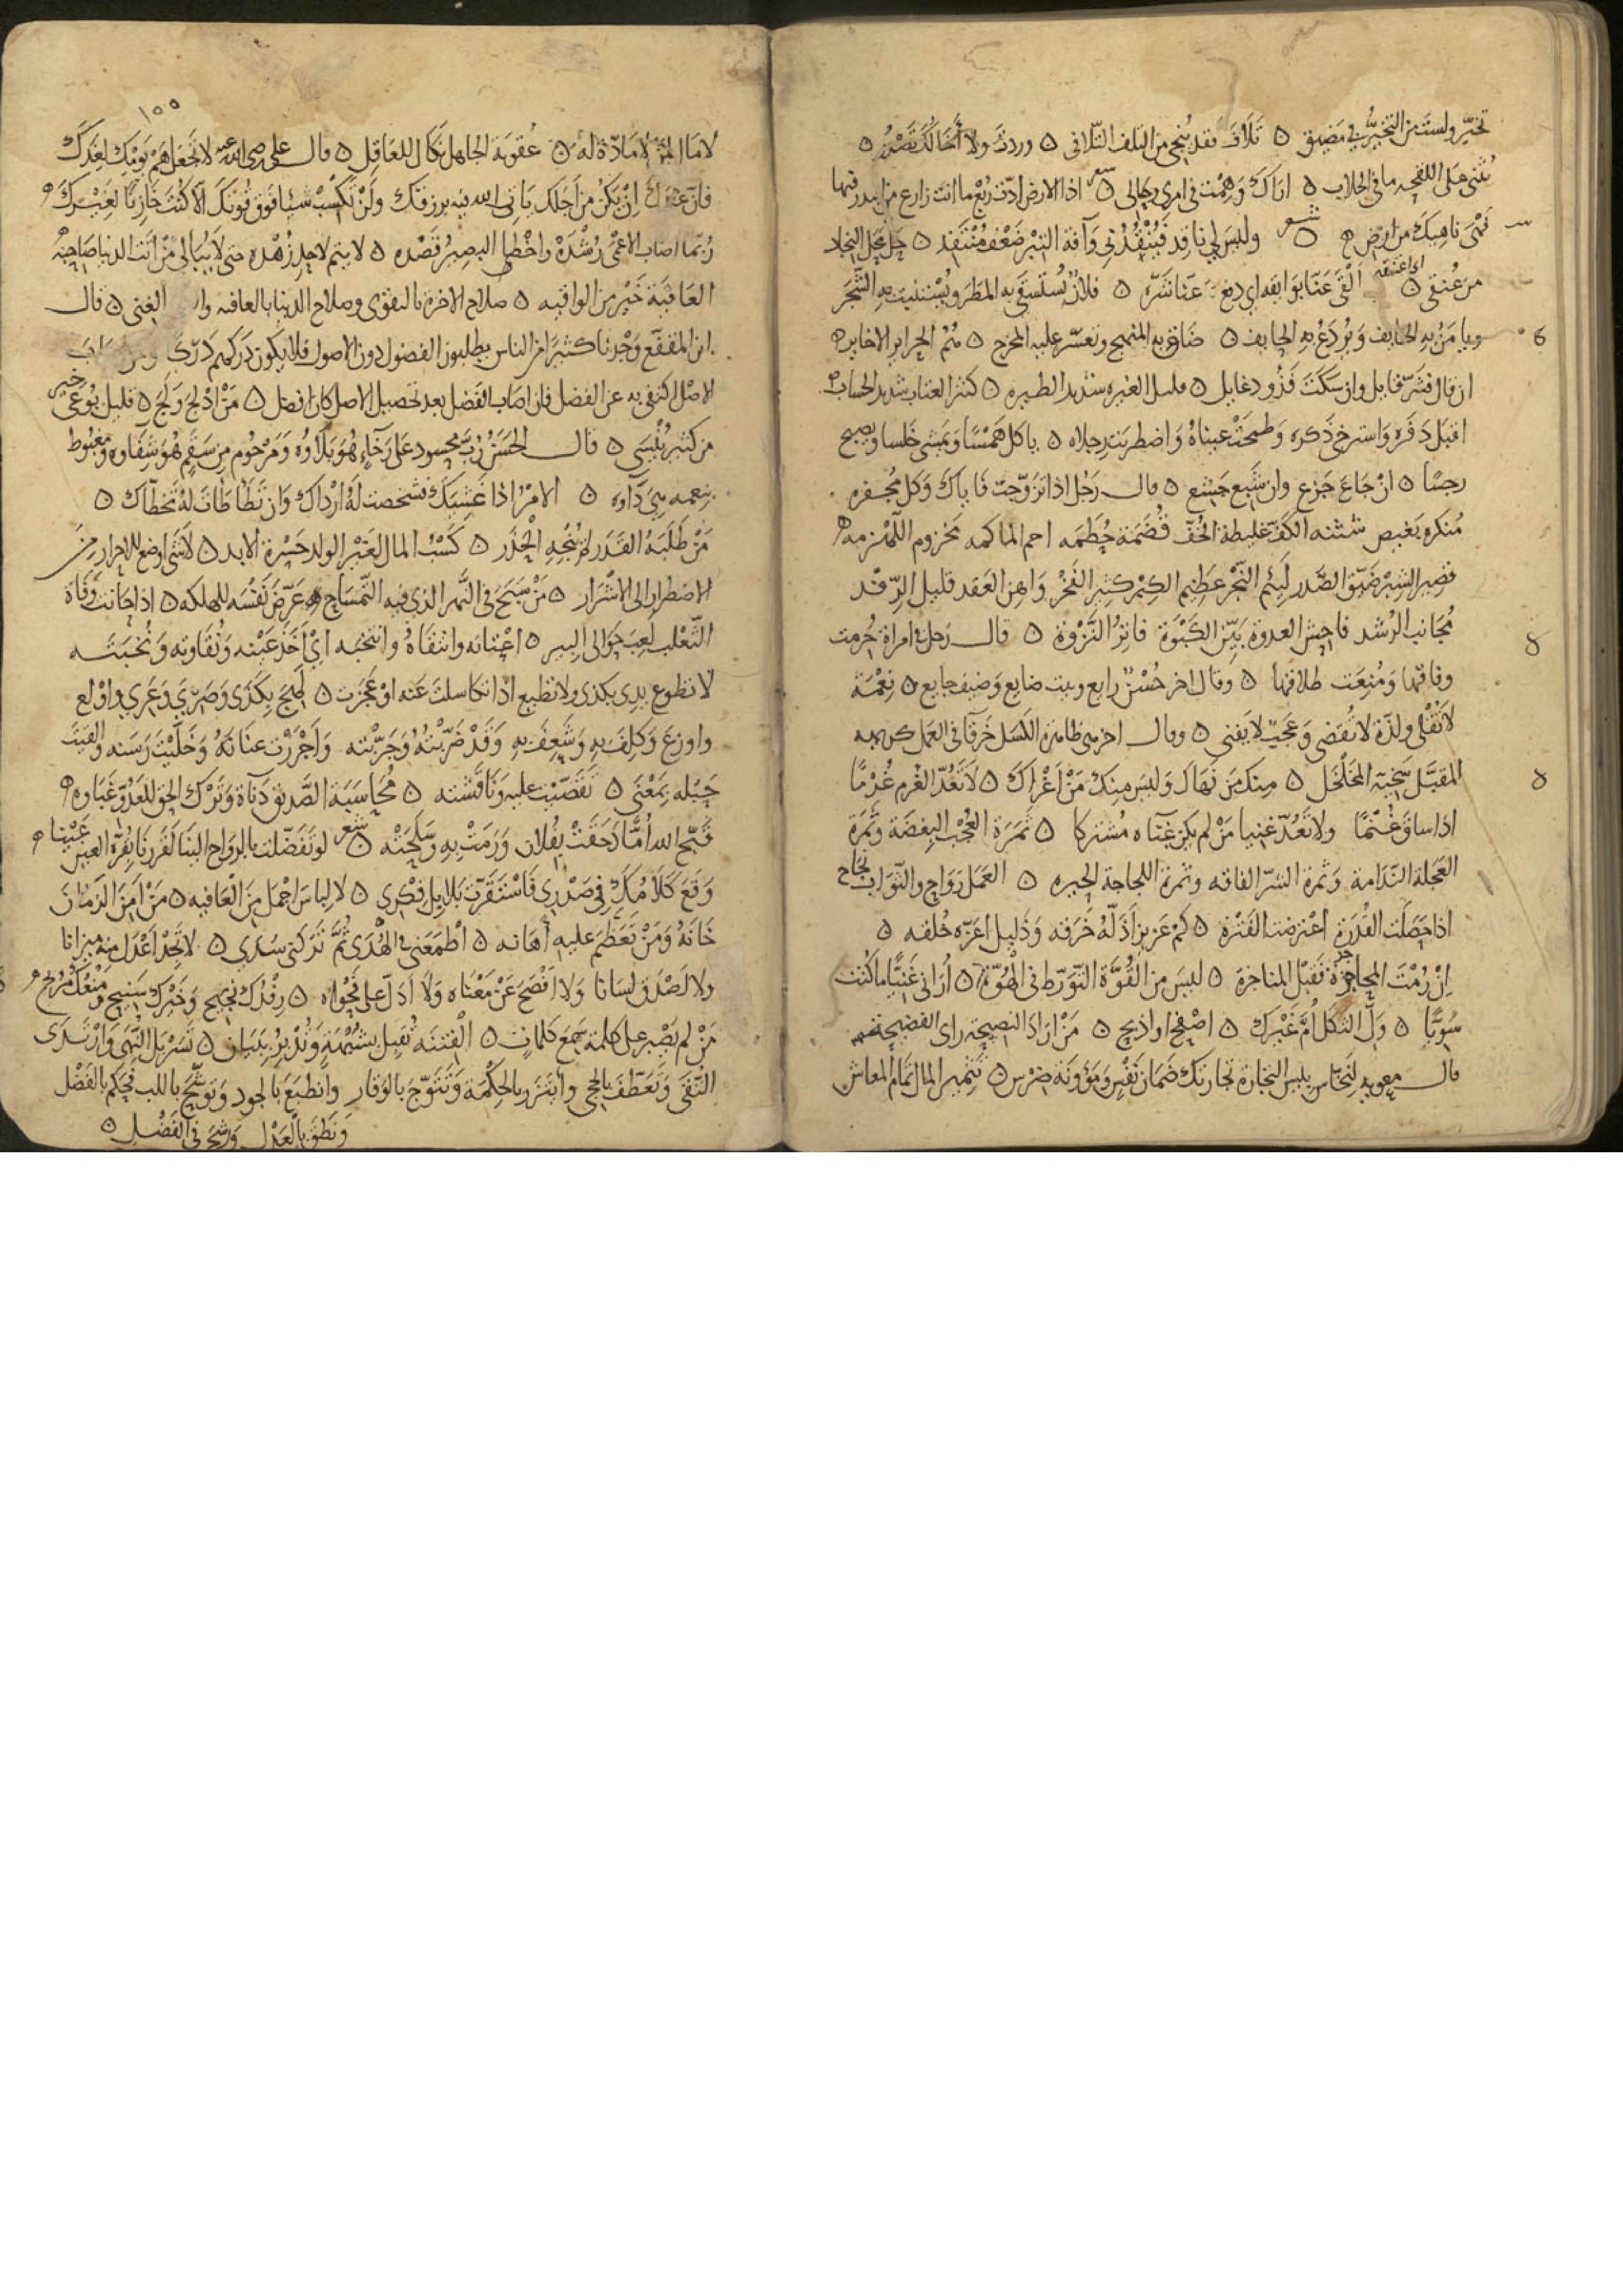 تخيّر ولست من التخيّر في مضيق ۵ تلاف فقد ينجي من التلف التلافي ۵ وردت ولا أخالك تصدر ۵
يثنى على اللقحه ما في الحلاب ۵ اراك وهمت في امري وحالي ۵ شعر اذا الارض ادّت ريع ما انت زارع من البدر فيها
فهي ناهيك من ارض ۵ شعر وليس لي ناقد فينقدني وآفة التبر ضعف منتقد ۵ حل محل النجاد
من عنقي ۵ اي اعتقه القى عنّا بوابقه اي دفع عنّا شرّه ۵ فلان يُستسقى به المطر ويستنبت به الشجر
ويامن به الخايف ويودع به الحايف ۵ ضاق به المنهج وتعسّر عليه المخرج ۵
ان قال فشرّ قايل وان سكت فذو دغايل ۵ قليل الغيره شديد الطيره ۵ كثير العتاب شديد الحساب
اقبل ذفره واسترخى ذكره وطمحت عيناه واضطربت رجلاه ۵ ياكل همسًا ويمشي خلسا ويصبح
رجسًا ۵ ان جاع جزع وان شبع جشع ۵ قال رجل اذا تزوّجت فاياك وكل مجفره
منكره شثنه الكف غليظة الخف
قصير الشبر ضيّق الصدر لئيم النجر عظيم الكبر كثير الفخر واهن العقد قليل الرفد
مجانب الرشد فاحش العدوة بيّن الكبوة فاتر النزوة ۵ قال رجل في امراة حُرمت
وفاقها ومُنِعَت طلاقها ۵ وقال اخر حُسْنٌ رايع وبيت ضايع وضيف جايع ۵ نعمة
لا تُقلى ولذّة لا تُقضى وعجبٌ لا يفنى ۵ وقال اخر هي ظاهرة الكسل خرقا في العمل كريهه
المقبَّل سخينة المخلخل ۵ مِنك مَن نهاك وليس منك مَن أغراك ۵ لا تعُدّ الغُرم غُرمًا
اذا ساق غنمًا ولا تعُدّ غنيا مَن لم يكن غناه مشتركا ۵ ثمرة العُجب البِغضة وثمرة
العجلة الندامة وثمرة الشرّ الفاقه وثمرة اللجاجة الحيره ۵ العمل رواح والثواب نجاح
اذا حصلت القدرة اعترضت الفترة ۵ كم عزيز اذلّه خرقه وذليل اعزّه خلقه ۵
ان رُمت المحاجزة فقبل المناجزة ۵ ليس من القوّة التورّط في الهوّة ۵ أراني غنيًّا ما كنت
سويًّا ۵ ولّ الثكل أمّ غيرك ۵ اصفح او اذبح ۵ مَن اراد النصيحة راى الفضيحة
قال معويه لنخّاس بئس التجارة تجارتك ضمان نفس ومؤونة ضرس ۵ تثمير المال تمام المعاش
١٥٥
لا مال لمن لا مادّة له ۵ عقوبة الجاهل نكال للعاقل ۵ قال علي رضي الله عنه لا تجعل همّ يومك لغدك
فان غدك ان يكن من اجلك ياتي الله فيه برزقك ولن تكسب شيئا فوق قوتك الا كنت خازنًا لغيرك
ربّما اصاب الاعمى رشده واخطا البصير قصده ۵ لا يتم لاحدٍ زهده حتى لا يبالي من انت الدنيا صاحبه
العافية خير من الواقيه ۵ صلاح الاخرة بالتقوى وصلاح الدنيا بالعافيه الغنى ۵ قال
ابن المقفّع وجدنا كثيرًا من الناس يطلبون الفضول دون الاصول فلا يكون دركهم درك
الاصل اكتفى به عن الفضل فان اصاب الفضل بعد تحصيل الاصل كان افضل ۵ مَن ادلج ولج ۵ قليل يوعى خير
من كثير ينسى ۵ قال الحسن رُبّ محسود على رخآءٍ هو بلاؤه ومرحوم من سقم هو شفاوه ومغبوط
بنعمه هي دآوه ۵ الامر اذا غشيك فشخصت له ارداك وان تطاطات له تخطاك ۵
مَن طلبه القدر لم ينجه الحذر ۵ كسب المال لغير الولد حسرة الابد ۵ لا شي اوضع للاحرار من
الاضطرار الى الاشرار ۵ مَن سبح في النهر الذي فيه التمساح عرّض نفسه للهلكه ۵ اذا حانت وفاة
الثعلب لعب حوالى البير ۵ اعتانه وانتقاه وانتخبه اي أخذ عينه ونقاوته ونخبته
لا تطوع يدي بكذى ولا تطيع اذا تكاسلت عنه او عجزت ۵ لهج بكذى وضري وغري واولع
واوزع وكلف به وشعف به وقد ضرّبته وجرّبته واجررت عنانه وخلّيت رسنه والقيت
حبله بمعنى ۵ تقصّيت عليه وناقشته ۵ محاسبة الصديق دناة وترك الحق للعدوّ غباوه
قبّح الله أمًّا دحقت بفلان ورمت به وسلحته ۵ شعر لو تفضلت بالرواح الينا لقررنا بقرّة العين عينا
وقع كلامك في صدري فاستنقرت بلابل فكري ۵ لا لباس اجمل من العافيه ۵ مَن امِنَ الزمان
خانه ومَن تعظم عليه اهانه ۵ اطمعني في الهدى ثم تركتني سدى ۵ لا تجد اعدل منه ميزانا
ولا اصدق لسانا ولا افصح عن معناه ولا ادلّ على نجواه ۵ رفدك نجيح وخيرك سنيح ومنعك مُريح
مَن لم يصبر على كلمة سمع كلمات ۵ الفتنه تقبل بشبهة وتُدبر ببيان ۵ تسربل النهى وارتدى
التقى وتعطّف بالحجى واتّزر بالحكمة وتتوّج بالوقار وانطبع بالجود وتوشّح باللب فحكم بالفضل
ونطق بالعدل ورشح في الفضل ۵